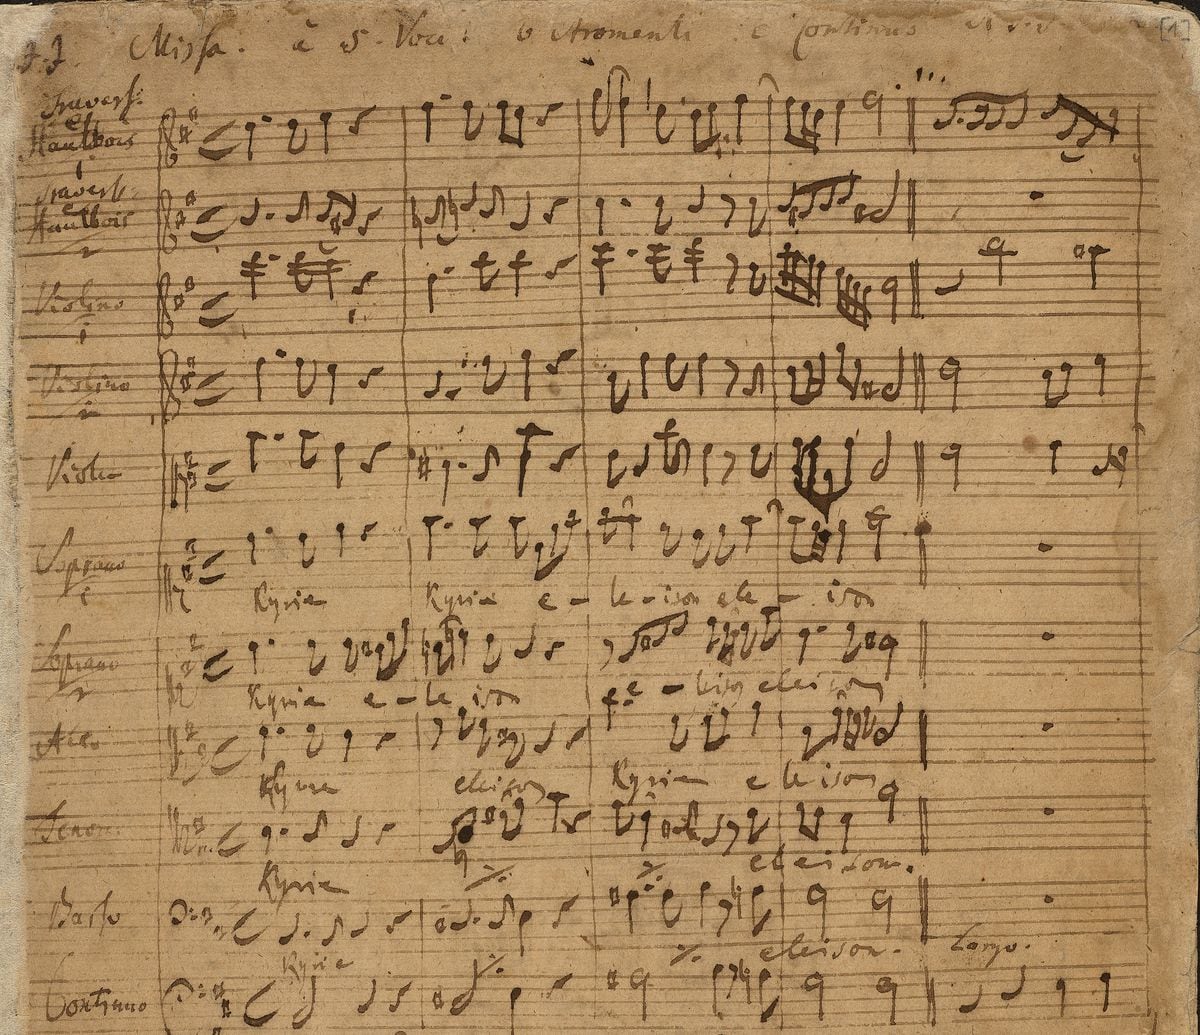 J.J. Missa. à 5. Voci. 6 Stromenti e Continuo [1]
Travers:
et
Hautbois
1
Travers:
e
Hautbois
2
Violino
1
Violino
2
Viola
Soprano
1
Kyrie Kyrie e - le - ison ele - ison
Soprano
2
Kyrie e - le ison e - leison eleison
Alto
Kyrie eleison Kyrie e leison
Tenor.
Kyrie eleison.
Basso
Kyrie eleison. Largo.
Continuo